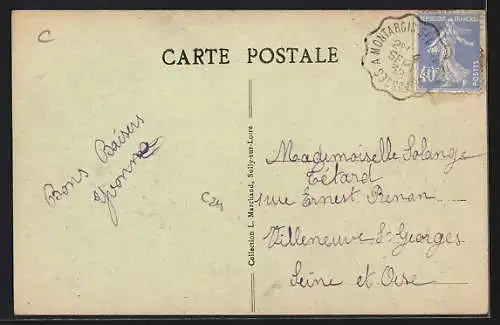 C
CARTE POSTALE
A MONTARGIS
REPUBLIQUE FRANÇAISE
40c
POSTES
Bons Baisers
Yvonne
C24
Collection L. Marchand, Sully-sur-Loire
Maademoiselle Solange
Tétard
1 rue Ernest Renan
Villeneuve St Georges
Seine et Oise